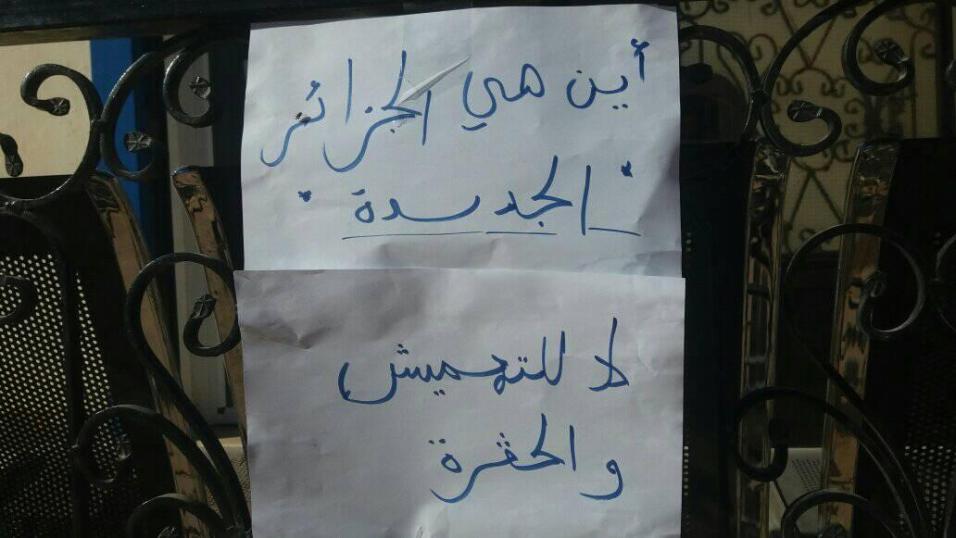 أين هي الجزائر
"الجديدة"
لا للتهميش
و الحڤرة